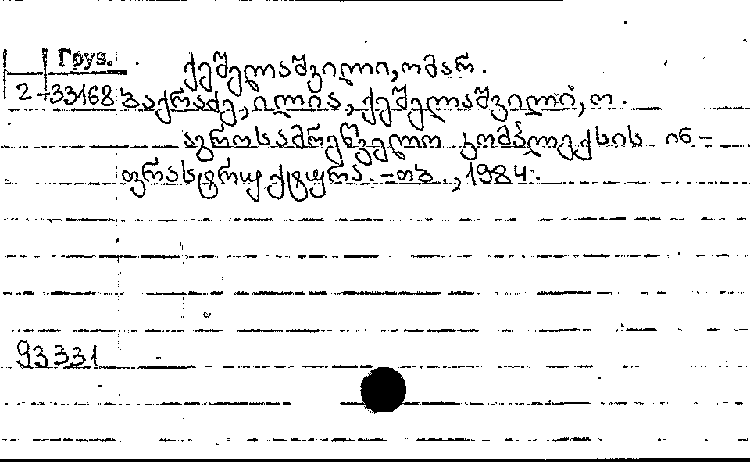 Груз.
ქეშელაშვილი, ომარ.
2-33168 ბაქრაძე, ილია, ქეშელაშვილი, ო.
აგროსამრეწველო კომპლექსის ინ-
ფრასტრუქტურა. - თბ., 1984.
93331